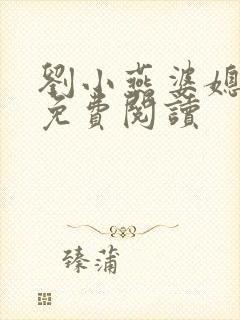 劉小燕婆媳
免費閱讀
臻蒲